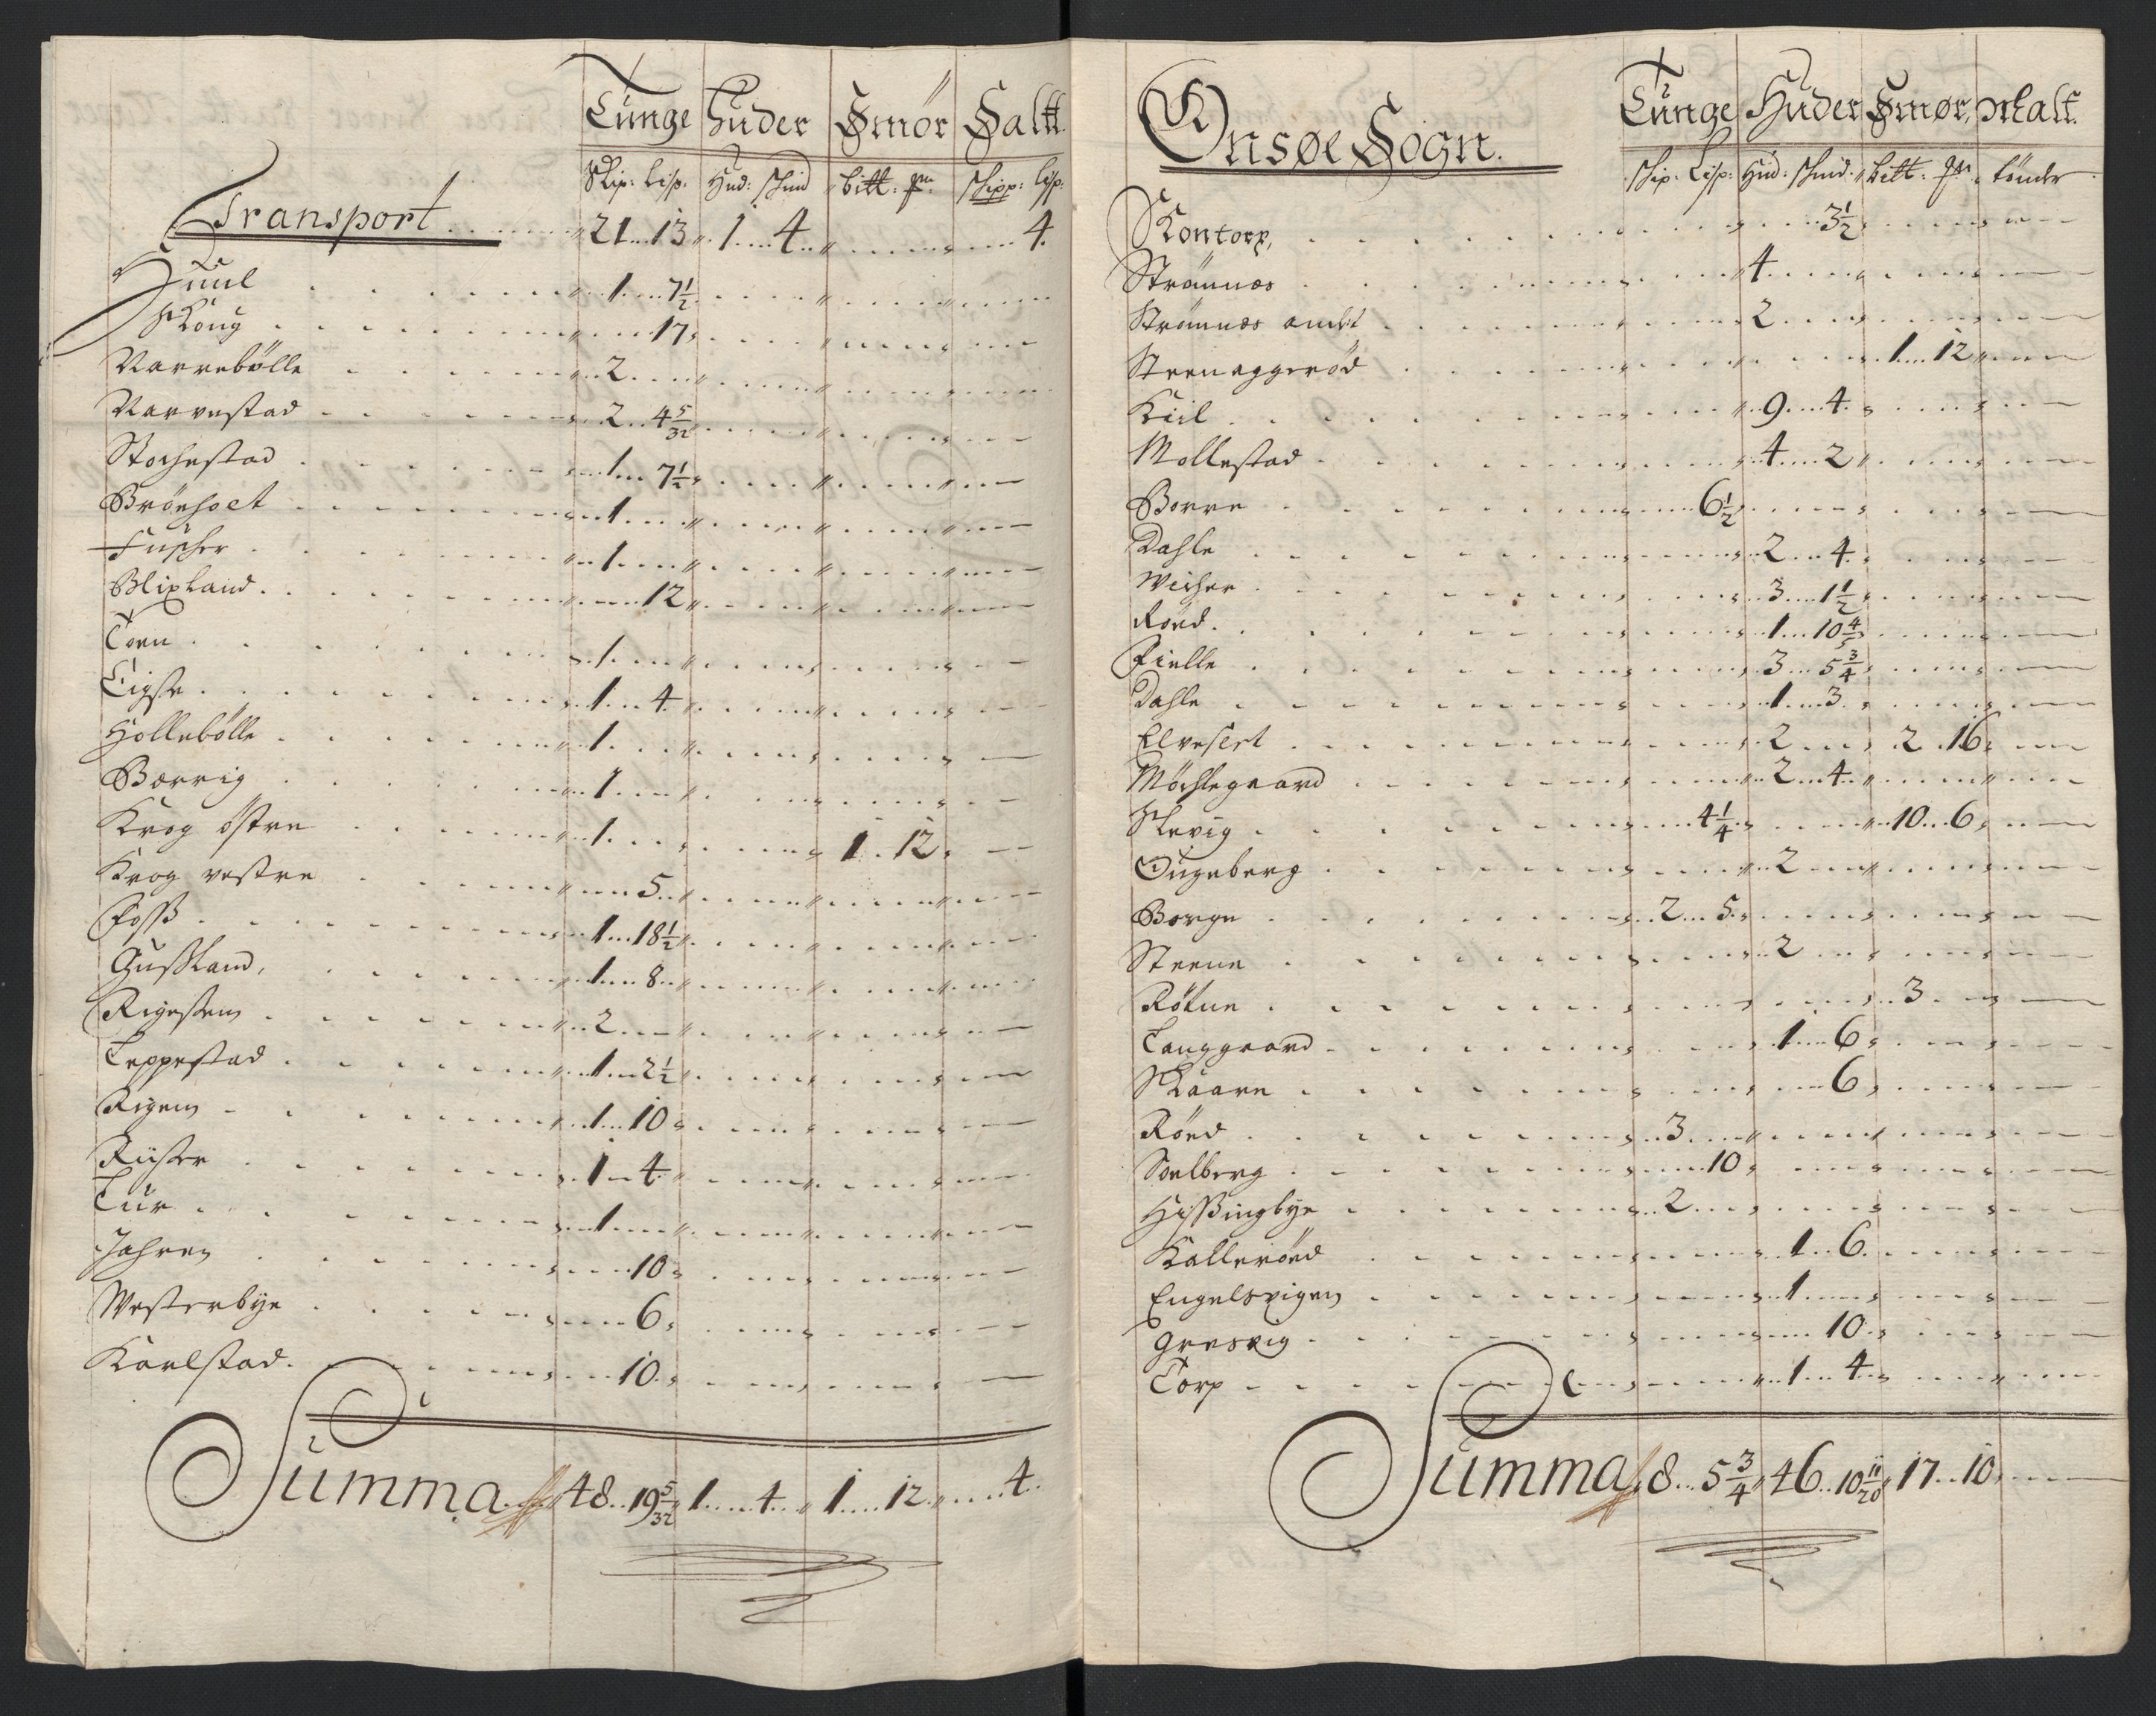 Tunge Huder Smör Saltt.
Skip: Lisp: Hud: skind bitt: pm: skipp: lisp:
Transport 21 13 1 4 4
Huul 1 7½
Skoug 17
Narrebölle 2
Narvestad 2 4 5/32
Stochestad 1 7½
Brönholt 1
Fuscher 1
Blixland 12
Toen 1
Ligse 1 4
Hollebölle 1
Bærrig 1
Krog östre 1 1 12
Krog vestre 5
Foss 1 18½
Gusland 1 8
Rigessem 2
Teppestad 1 2½
Rigem 1 10
Riiser 1 4
Tur 1
Jahren 10
Westerbye 6
Karlstad 10
Summa 48 19 5/32 1 4 1 12 4
Onsøe Sogn.
Tunge Huder Smør, Malt.
skip: Lisp: Hud: skind: bitt: pm: tönder
Kontorp, 3½
Strönnæs 4
Strönnæs andet 2
Steenaggeröd 1 12
Kiil 9 4
Mollestad 4 2
Borre 6½
Dahle 2 4
Weiher 3 1½
Röed 1 10 4/5
Fielle 3 5¾
Dahle 1 3
Elveseet 2 2 16
Möchlegaard 2 4
Slevig 4¼ 10 6
Ougeberg 2
Borge 2 5
Steene 2
Rötne 3
Langgaard 1 6
Skaare 6
Röed 3
Soelberg 10
Hissingbye 2
Kalleröed 1 6
Engelsvigen 1
Gresvig 10
Torp 1 4
Summa 8 5¾ 46 10 11/20 17 10